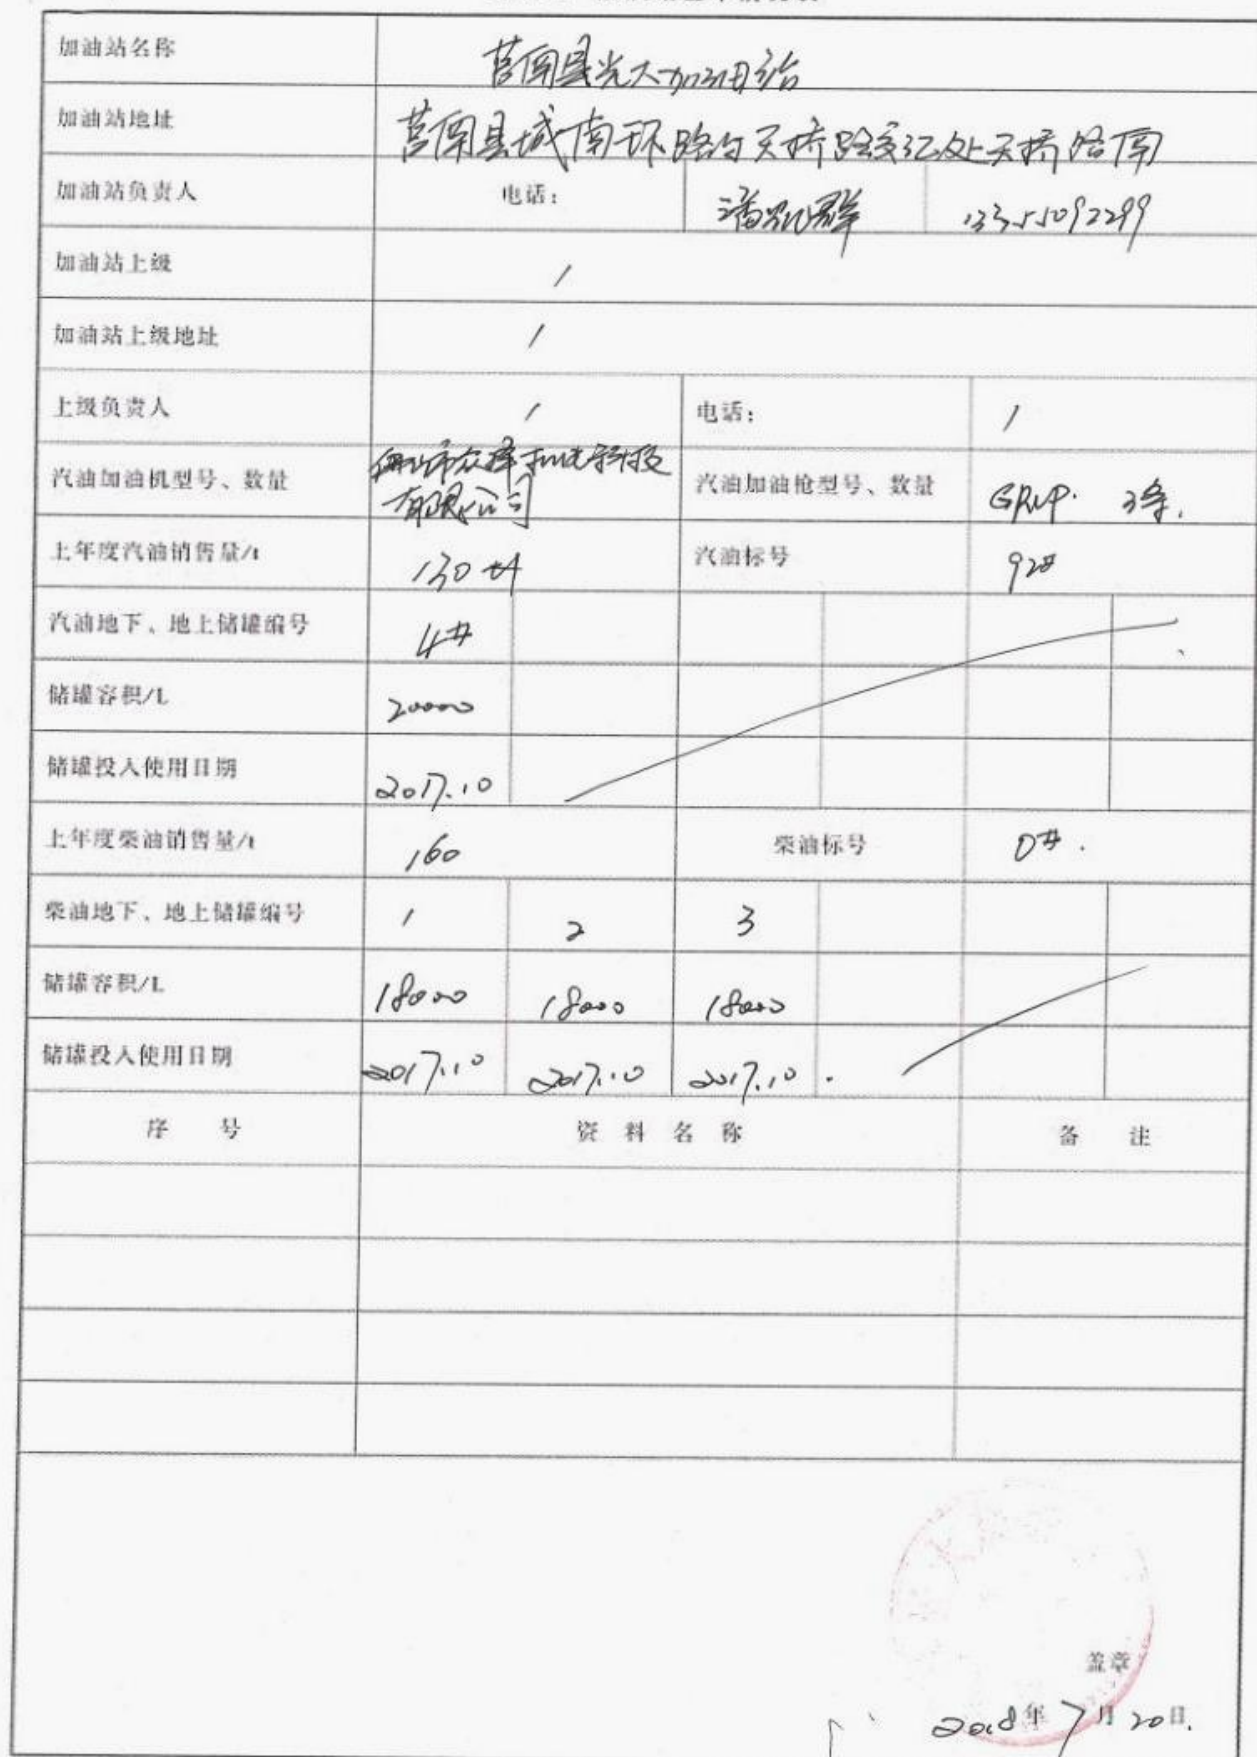 加油站名称 莒南县光大加油站
加油站地址 莒南县城南环路与天桥路交汇处天桥路南
加油站负责人 电话: 潘 群 13355092299
加油站上级 /
加油站上级地址 /
上级负责人 / 电话: /
汽油加油机型号、数量 市众 科技 汽油加油枪型号、数量 GRVP. 3条.
有限公司
上年度汽油销售量/t 130 汽油标号 92#
汽油地下、地上储罐编号 4#
储罐容积/L 20000
储罐投入使用日期 2017.10
上年度柴油销售量/t 160 柴油标号 0#.
柴油地下、地上储罐编号 1 2 3
储罐容积/L 18000 18000 18000
储罐投入使用日期 2017.10 2017.10 2017.10.
序 号 资 料 名 称 备 注
盖章
2018年7月20日.